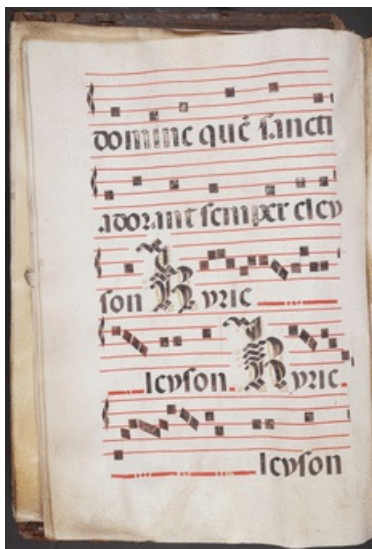 domine quē sancti
adorant semper eley
son Kyrie
leyson. Kyrie.
leyson